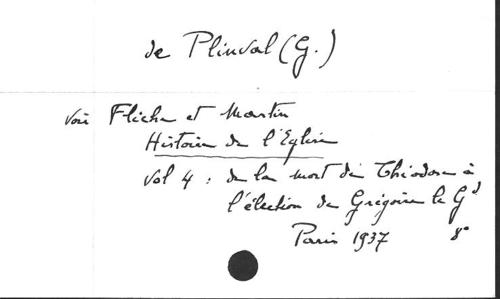 de Plinval (G.)
voir Fliche et Martin
Histoire de l'Eglise
Vol 4 : de la mort de Théodose à
l'élection de Grégoire le Gd
Paris 1937 8°